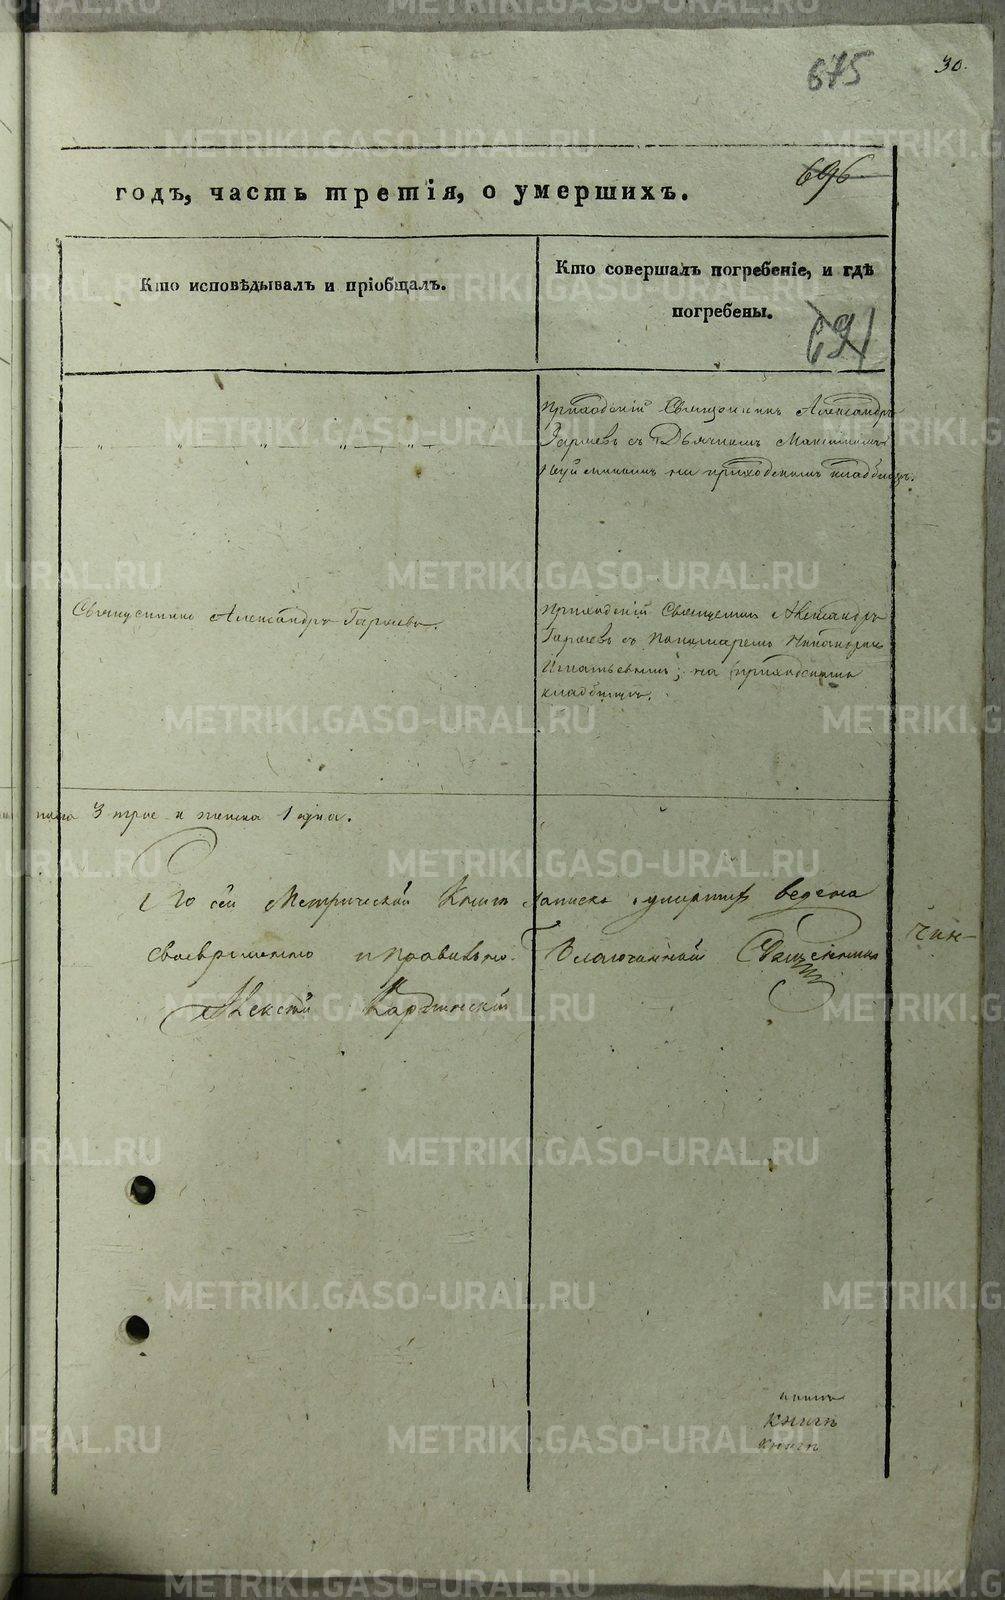 675
30.
696
годъ, часть третія, о умершихъ.
Кто исповѣдывалъ и пріобщалъ.
Кто совершалъ погребеніе, и гдѣ
погребены.
691
Приходскій Священникъ Александръ
Гаряевъ съ Дьячкомъ
на приходскомъ кладбищѣ.
Священникъ Александръ Гаряевъ.
Приходскій Священникъ Александръ
Гаряевъ съ Пономаремъ Никаноромъ
Игнатьевымъ; на приходскомъ
кладбищѣ.
3 трое и женска 1 одна.
По сей Метрической Книгѣ записка умершихъ ведена
своевременно и правильно. Благочинный Священникъ
Алексѣй
чин-
книгъ
книгъ
METRIKI.GASO-URAL.RU